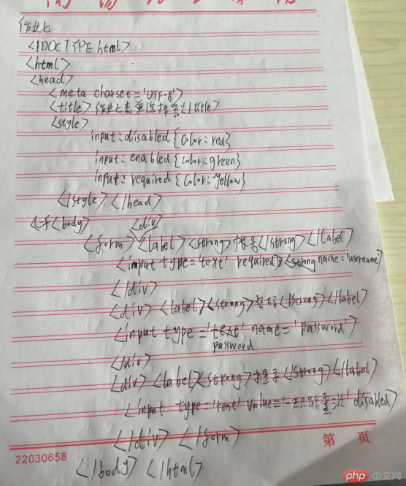 作业七
<!DOCTYPE html>
<html>
<head>
<meta charset='UTF-8'>
<title>作业七表单选择器</title>
<style>
input:disabled{color:red}
input:enabled{color:green}
input:required{color:yellow}
</style></head>
<body> <div>
<form><label><strong>账号</strong></label>
<input type='text' required name='username'>
</div>
<div><label><strong>密码</strong></label>
<input type='text' name='password'>
password
</div>
<div><label><strong>提示</strong></label>
<input type='text' value= disabled>
</div></form>
第 页
22030658
</body></html>
php 中文网